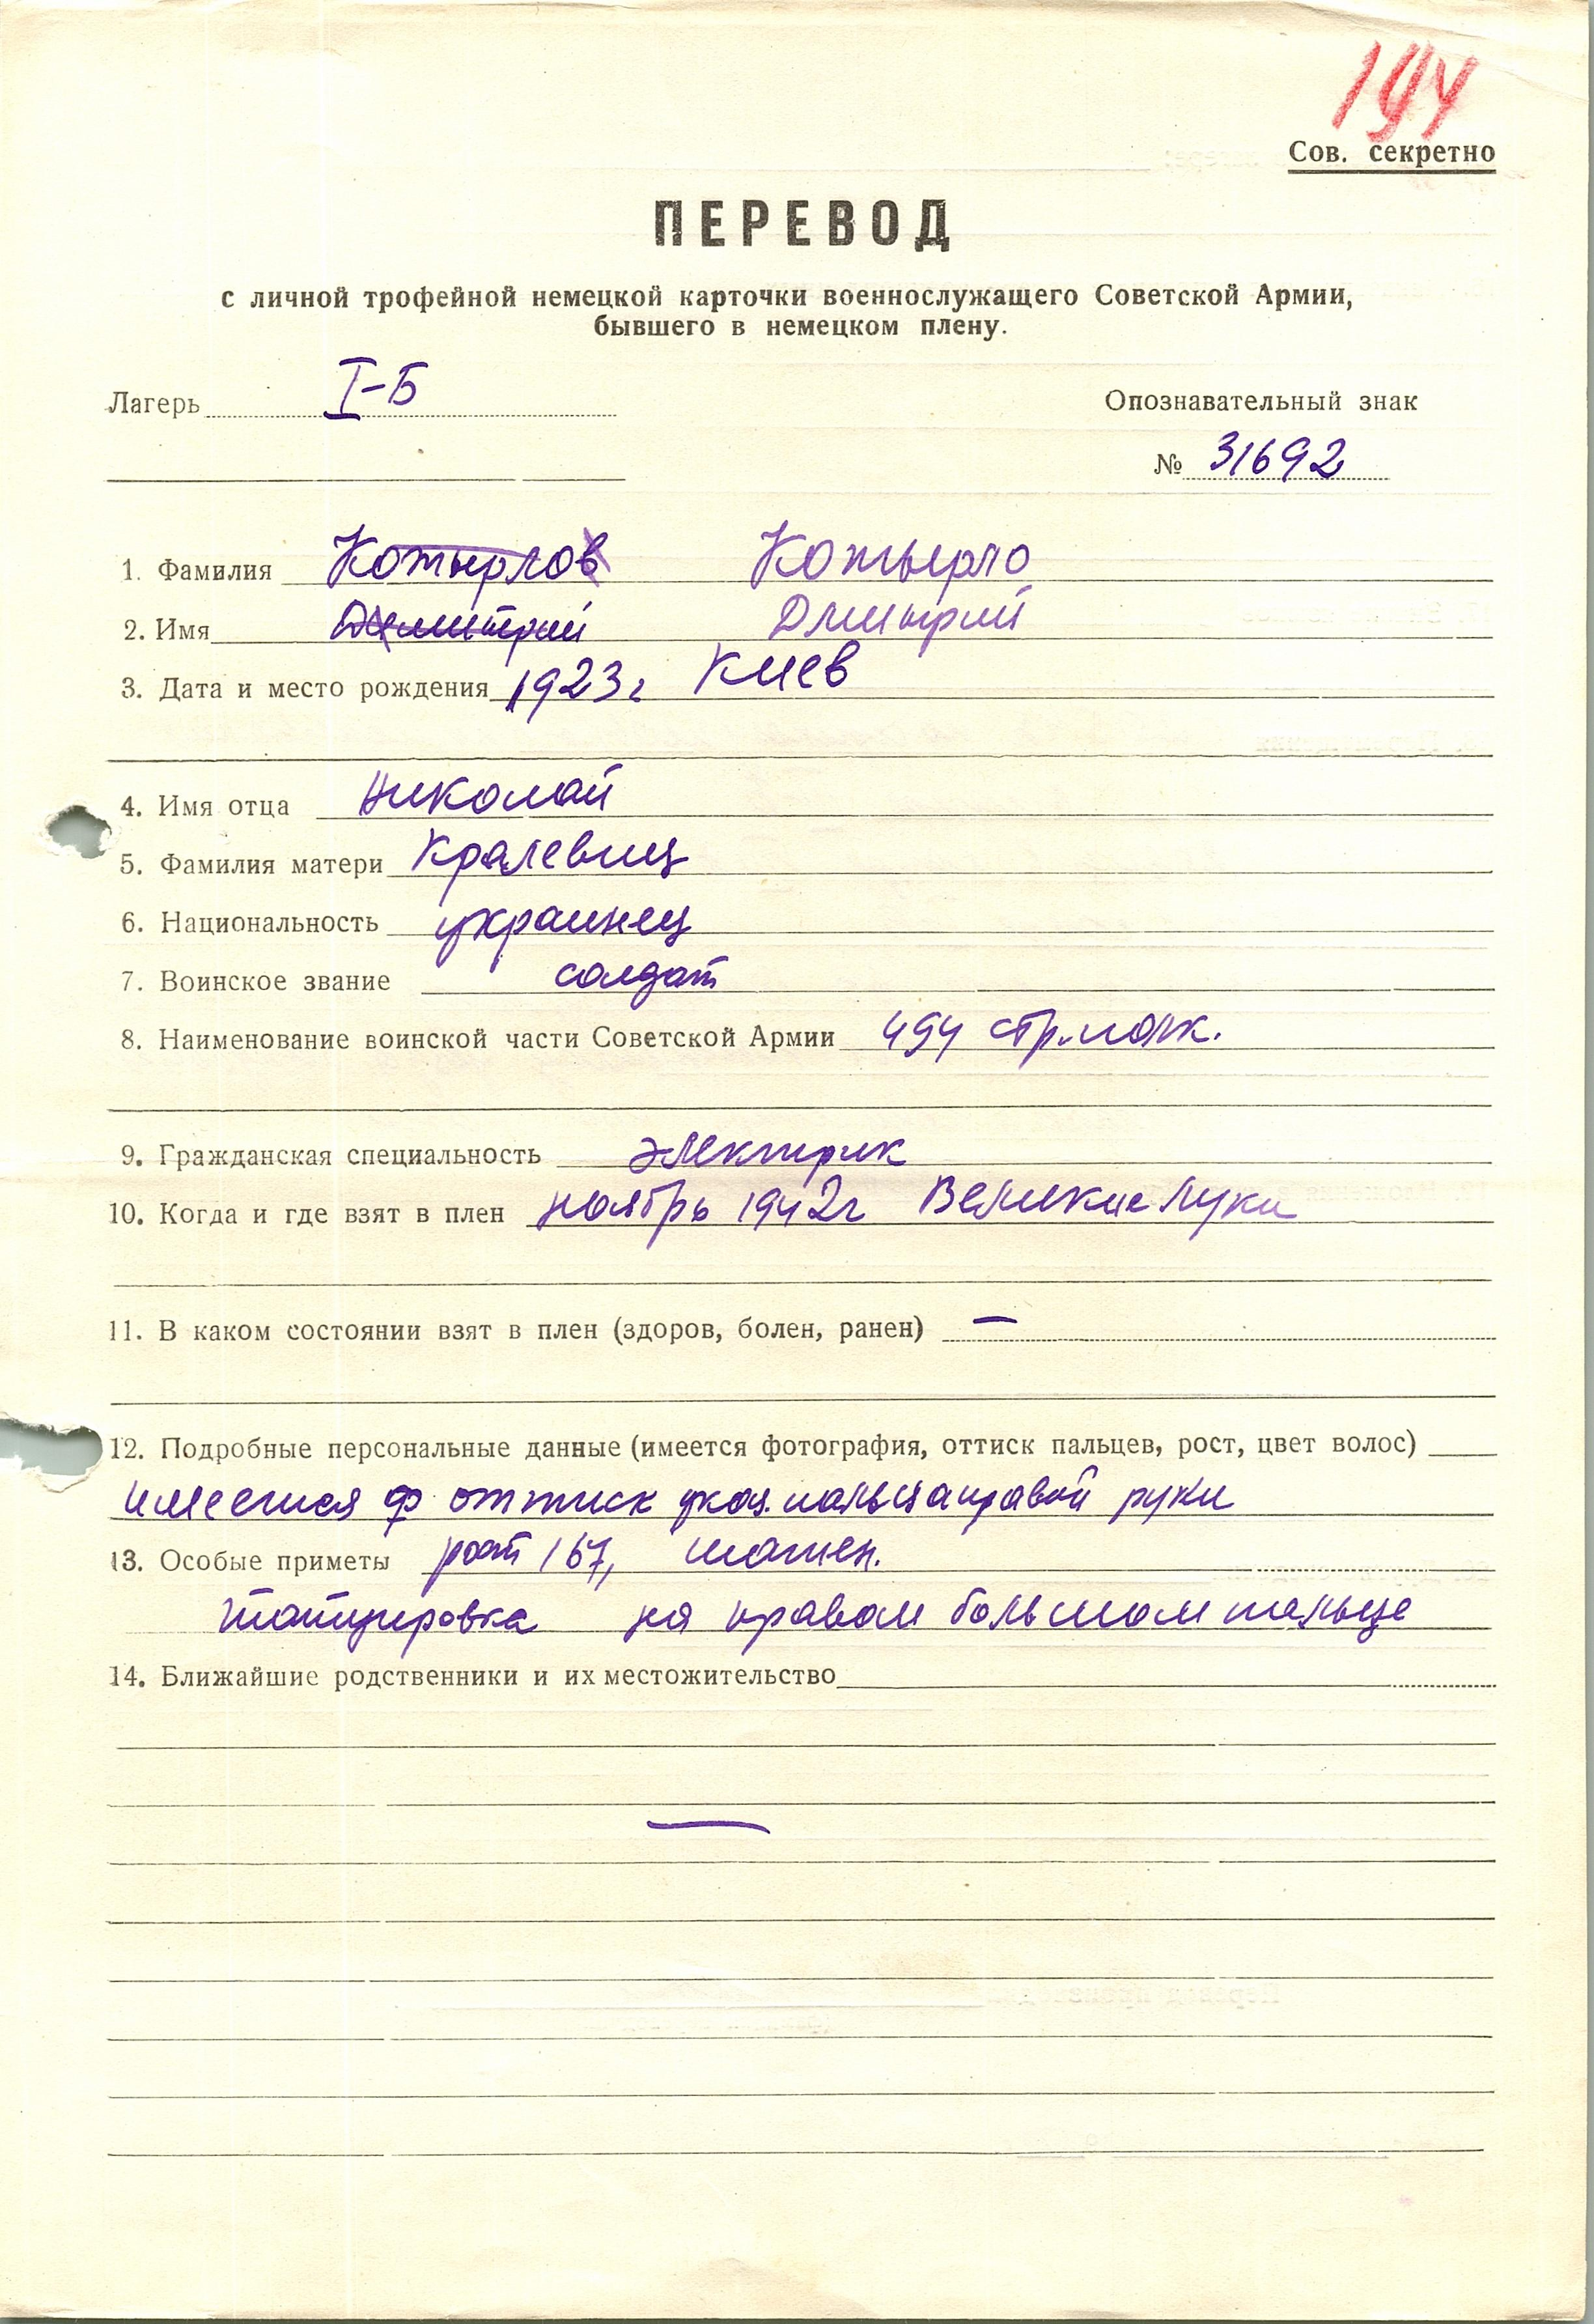 194
Сов. секретно
ПЕРЕВОД
с личной трофейной немецкой карточки военнослужащего Советской Армии,
бывшего в немецком плену.
Лагерь I-Б
Опознавательный знак
№ 31692
1. Фамилия Котырлов Котырло
2. Имя Димитрий Дмитрий
3. Дата и место рождения 1923г Киев
4. Имя отца Николай
5. Фамилия матери Кралевиц
6. Национальность украинец
7. Воинское звание солдат
8. Наименование воинской части Советской Армии 494 стр.полк.
9. Гражданская специальность электрик
10. Когда и где взят в плен ноябрь 1942г Великие Луки
11. В каком состоянии взят в плен (здоров, болен, ранен) —
12. Подробные персональные данные (имеется фотография, оттиск пальцев, рост, цвет волос)
имеется ф оттиск указ. пальца правой руки
13. Особые приметы рост 167, шатен.
татуировка на правом большом пальце
14. Ближайшие родственники и их местожительство
—